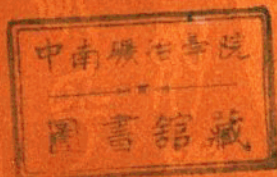 中南礦冶學院
圖書舘藏